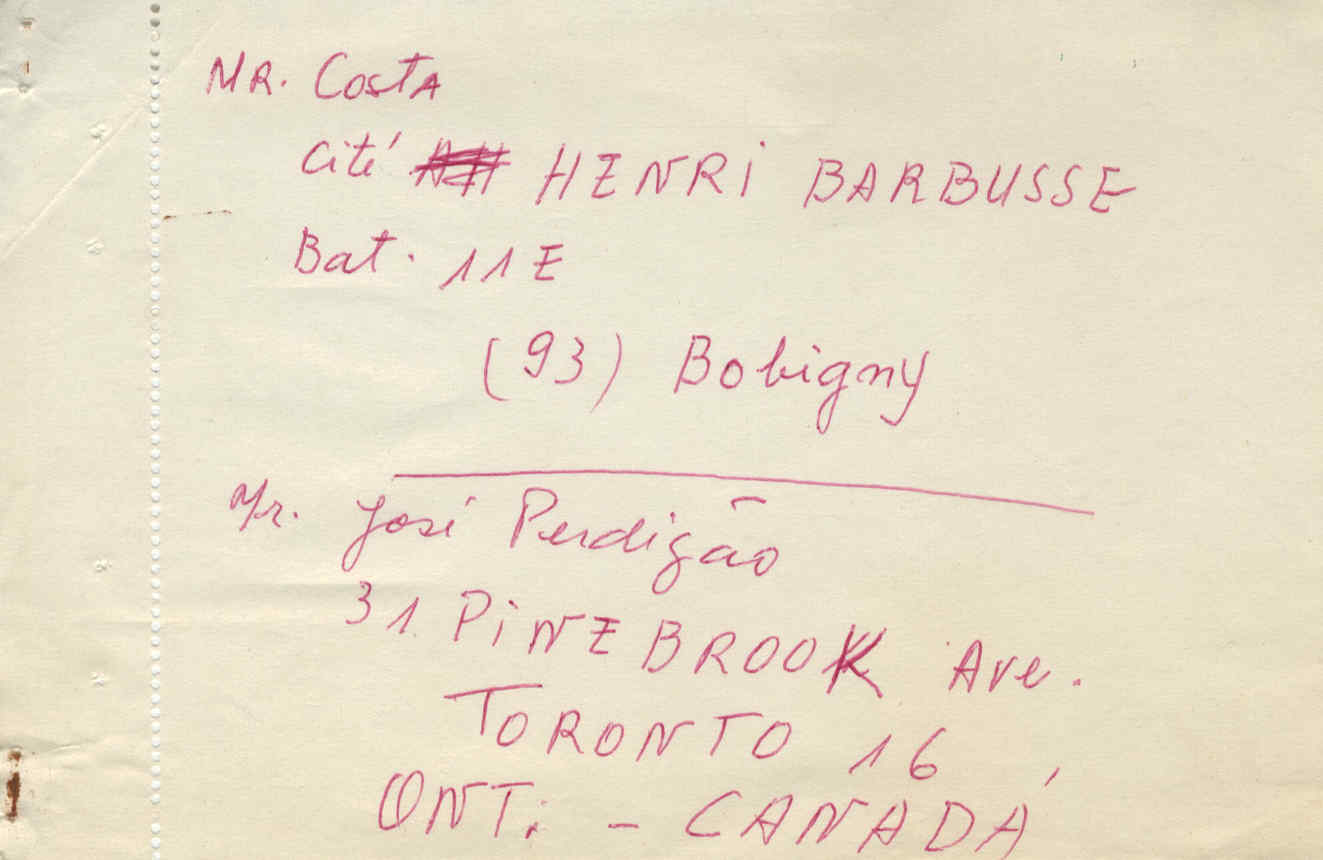 MR. Costa
Cité HENRI BARBUSSE
Bat. 11E
(93) Bobigny
Mr. José Perdigão
31 PiNEBROOK Ave.
TORONTO 16,
ONT. - CANADÁ